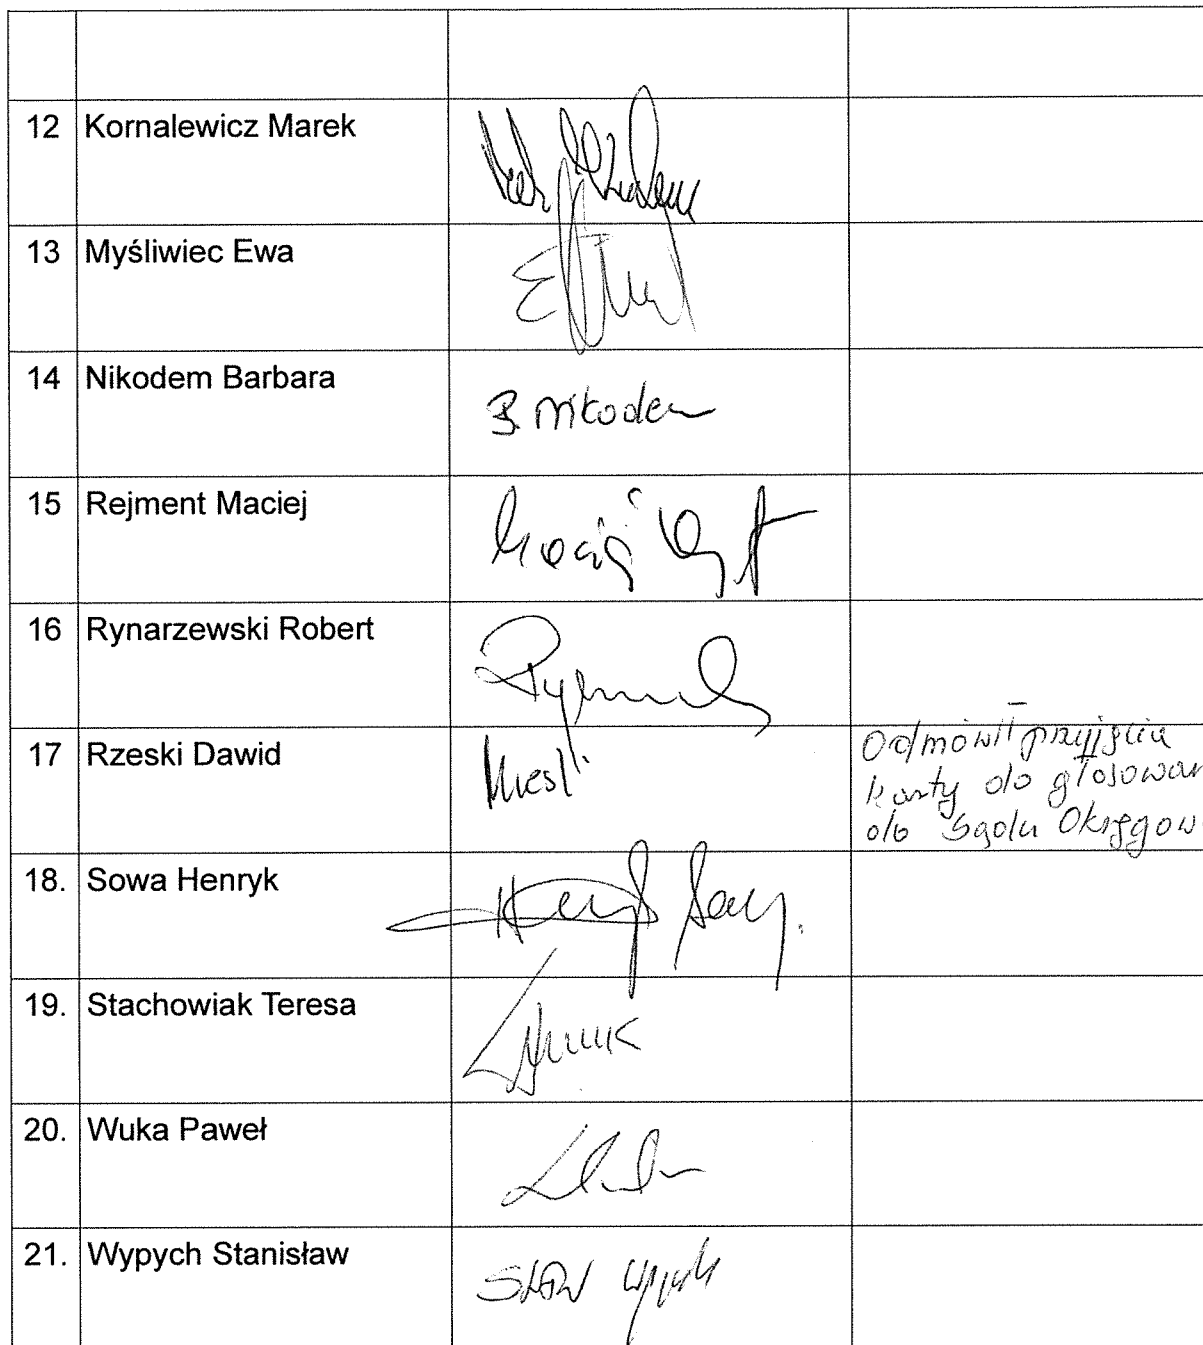 12 Kornalewicz Marek
13 Myśliwiec Ewa
14 Nikodem Barbara
B. Nikodem
15 Rejment Maciej
Maciej
16 Rynarzewski Robert
17 Rzeski Dawid
Odmówił przyjęcia
karty do głosowan
do Sądu Okręgow
18. Sowa Henryk
19. Stachowiak Teresa
20. Wuka Paweł
21. Wypych Stanisław
Stan Wypych